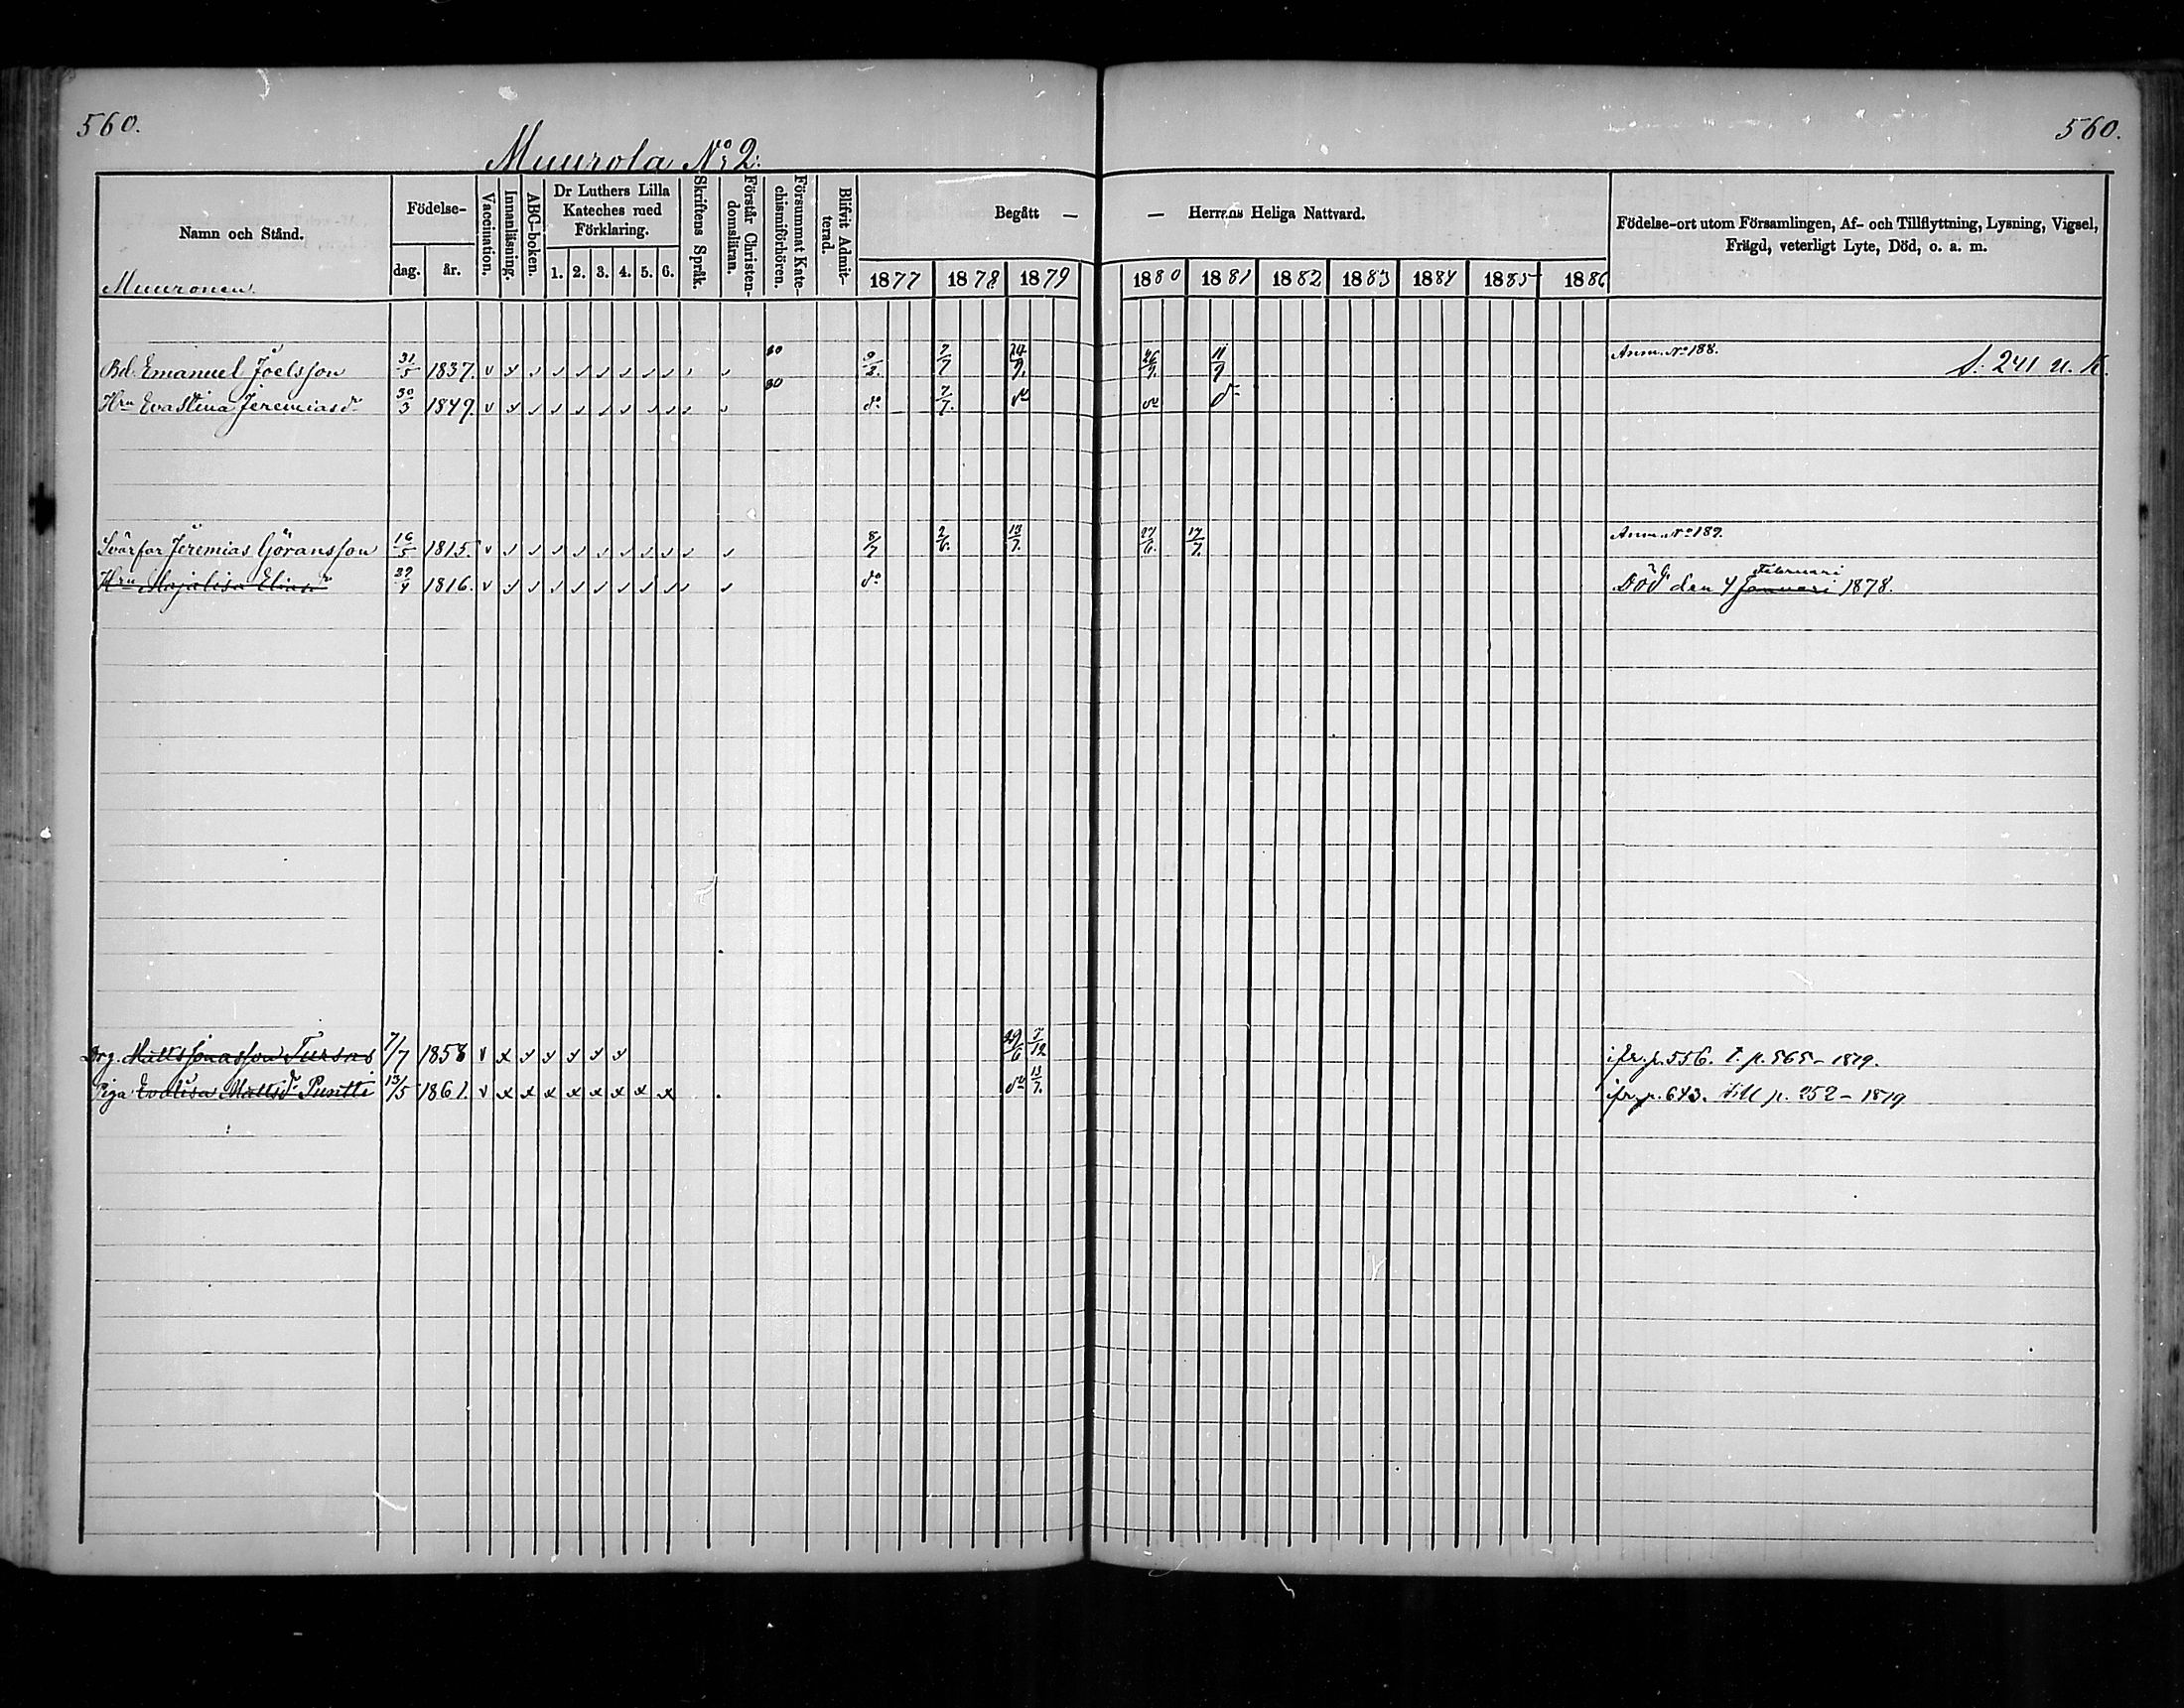 560.
560.
Muurola No 2.
Namn och Stånd.
Födelse-
dag.
år.
Vaccination.
Innanläsning.
ABC-boken.
Dr Luthers Lilla
Kateches med
Förklaring.
1. 2. 3. 4. 5. 6.
Skriftens Språk.
Förstår Christen-
domsläran.
Försummat Kate-
chismiförhören.
Blifvit Admit-
terad.
Begått —
— Herrans Heliga Nattvard.
1877 1878 1879 1880 1881 1882 1883 1884 1885 1886
Födelse-ort utom Församlingen, Af- och Tillflyttning, Lysning, Vigsel,
Frägd, veterligt Lyte, Död, o. a. m.
Muuronen.
Bd. Emanuel Joelsson 31/5 1837. v 80 9/2. 7/7 26/7. 11/7 Anm. No 188. S. 241 n. K.
Hru Evastina Jeremiasdr 30/3 1849. v 80 do 7/7. do do do
Svärfar Jeremias Göransson 16/5 1815. v 8/7 2/6. 13/7. 27/6. 17/7. Anm. No 189.
Hru Majalisa Eliasdr 1816. v do Död den 4 Januari Februari 1878.
Drg. Matts Jonasson Tursas 7/7 1858 v x 29/6 7/12 ifr. p. 556. t. p. 565 – 1879.
Piga Evalisa Mattsdr Puntti 13/5 1861. v x x x x x x x x do 13/7. ifr. p. 643. till p. 252 – 1879